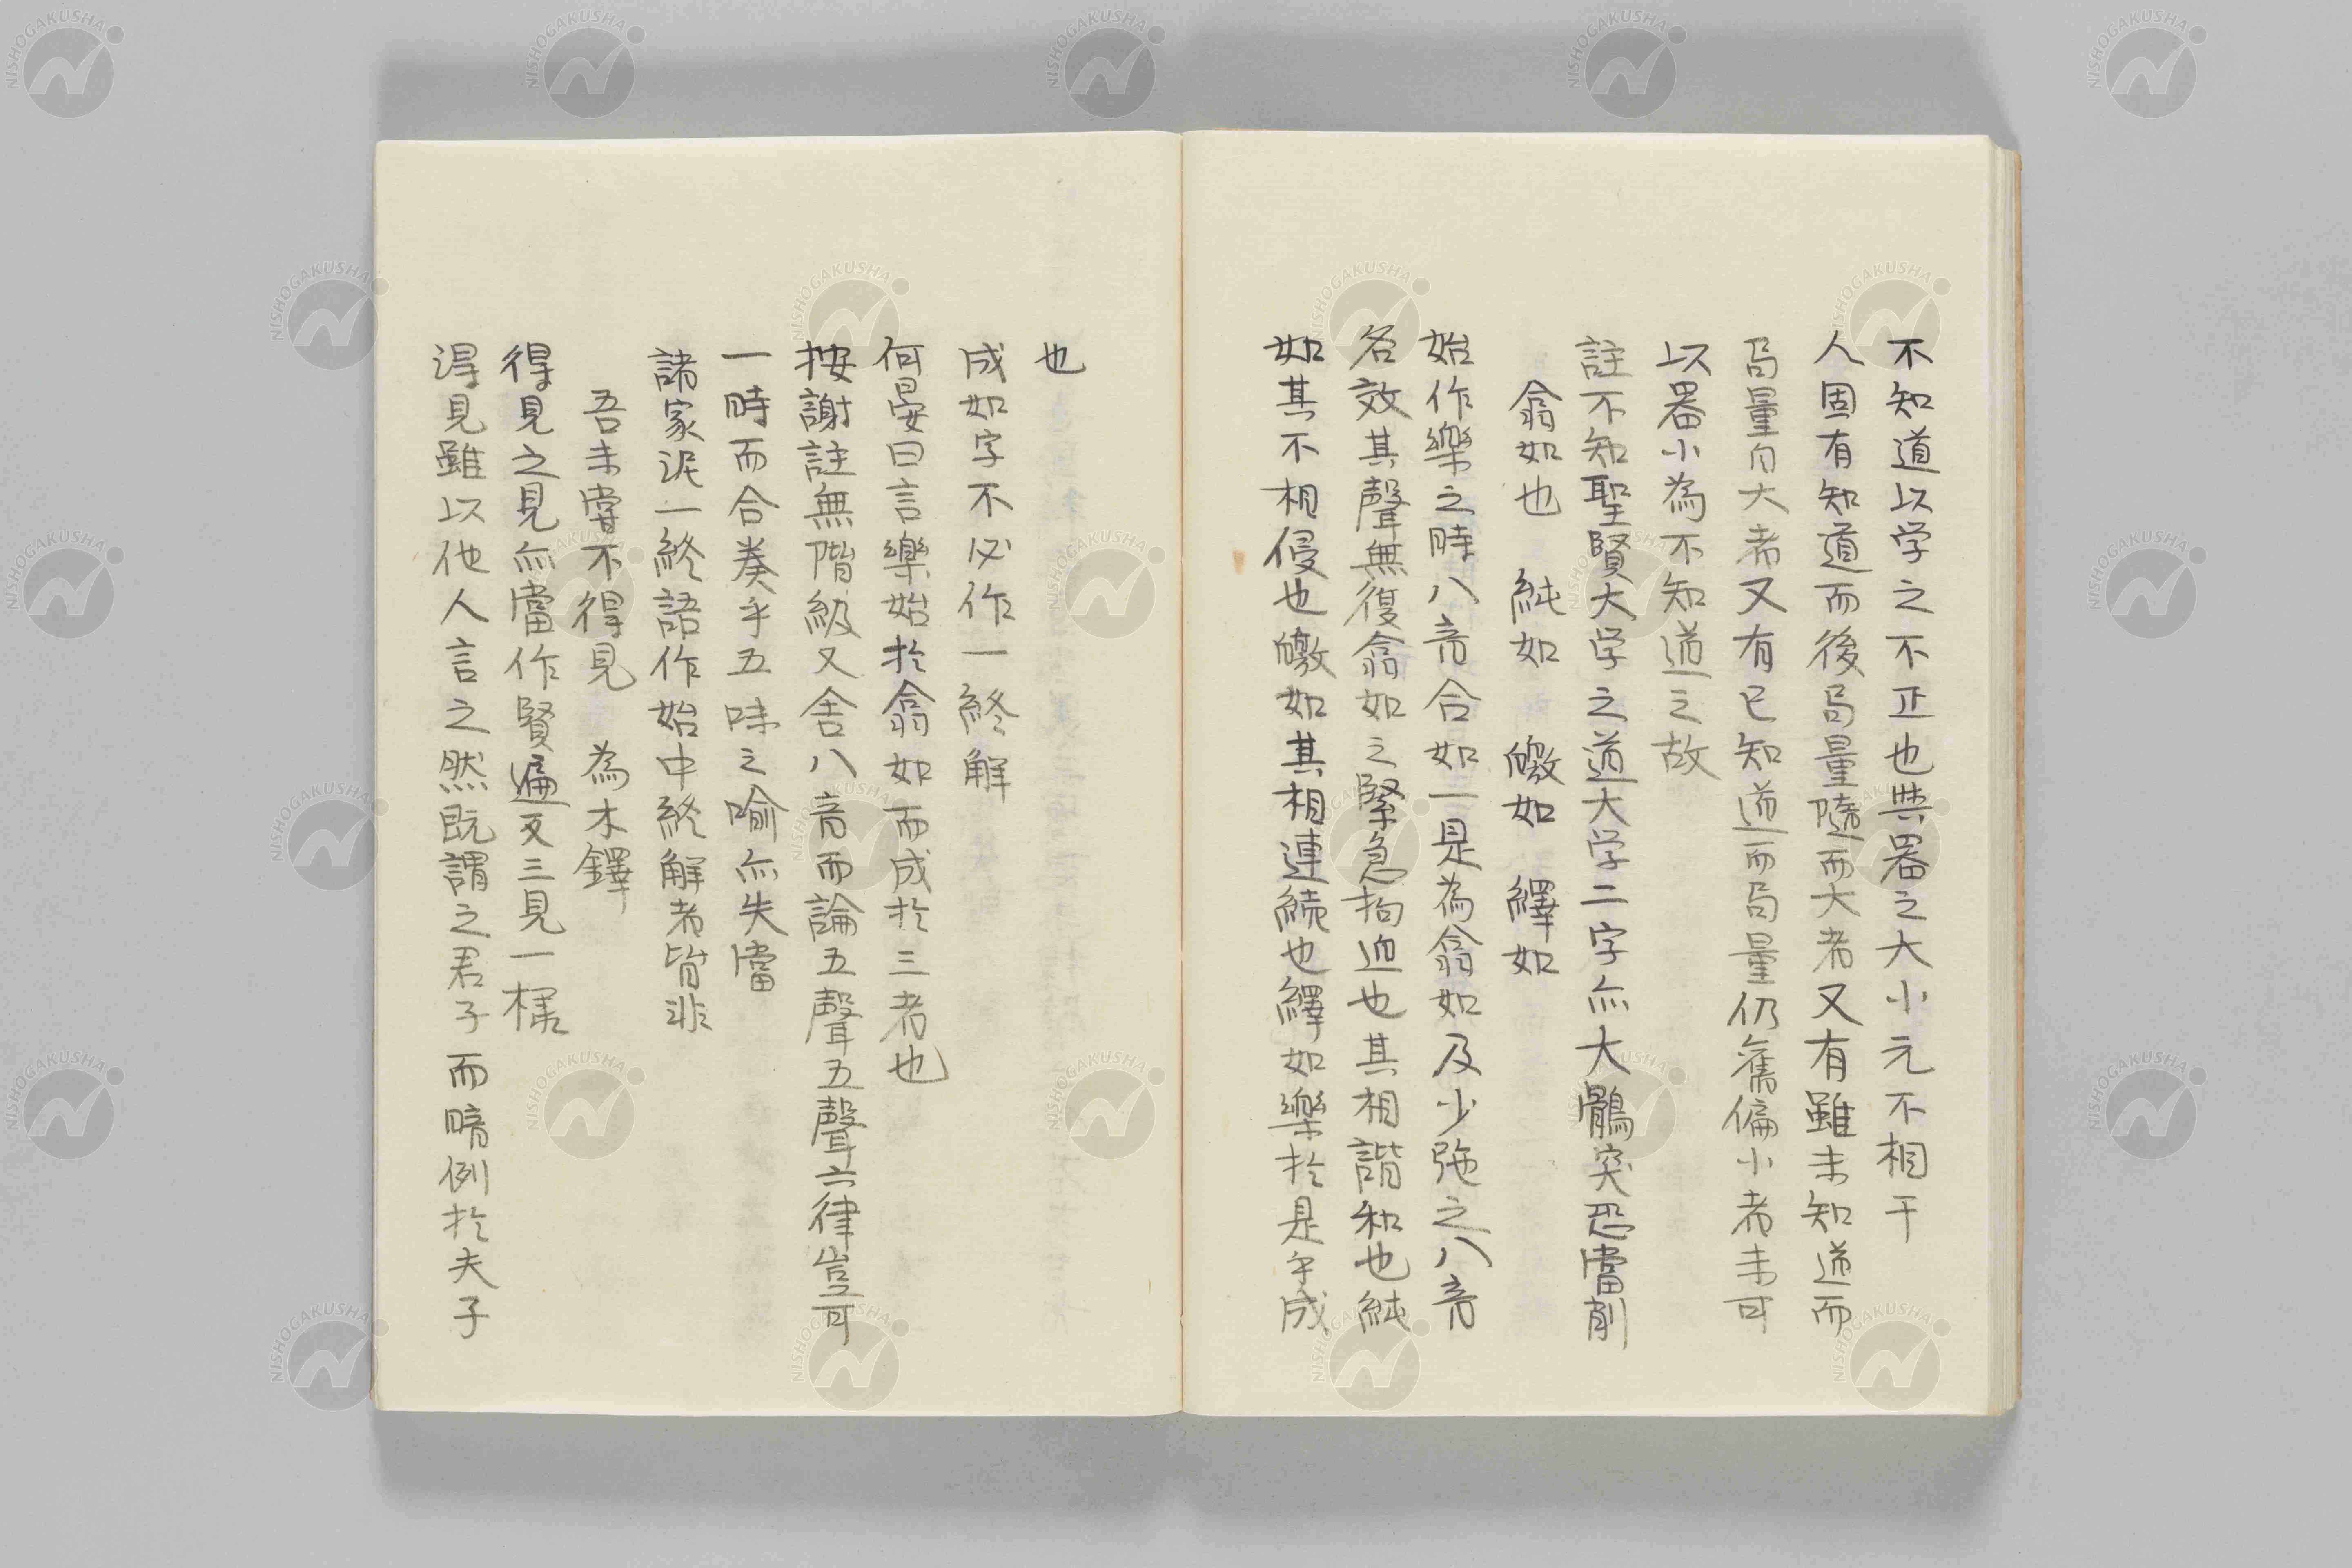 不知道以学之不正也與器之大小元不相干
人固有知道而後局量隨而大者又有雖未知道而
局量自大者又有已知道而局量仍舊偏小者未可
以器小為不知道之故
註不知聖賢大学之道大学二字亦大鶻突恐當削
翕如也　純如　皦如　繹如
始作樂之時八音合如一是為翕如及少弛之八音
各效其聲無復翕如之緊急拘迫也其相諧和也純
如其不相侵也皦如其相連続也繹如樂於是乎成
也
成如字不必作一終解
何晏曰言樂始於翕如而成於三者也
按謝註無階級又舍八音而論五聲五聲六律豈可
一時而合奏乎五味之喻亦失當
諸家泥一終語作始中終解者皆非
吾未嘗不得見　為木鐸
得見之見亦當作賢遍反三見一樣
得見雖以他人言之然既謂之君子而暗例於夫子
NISHOGAKUSHA